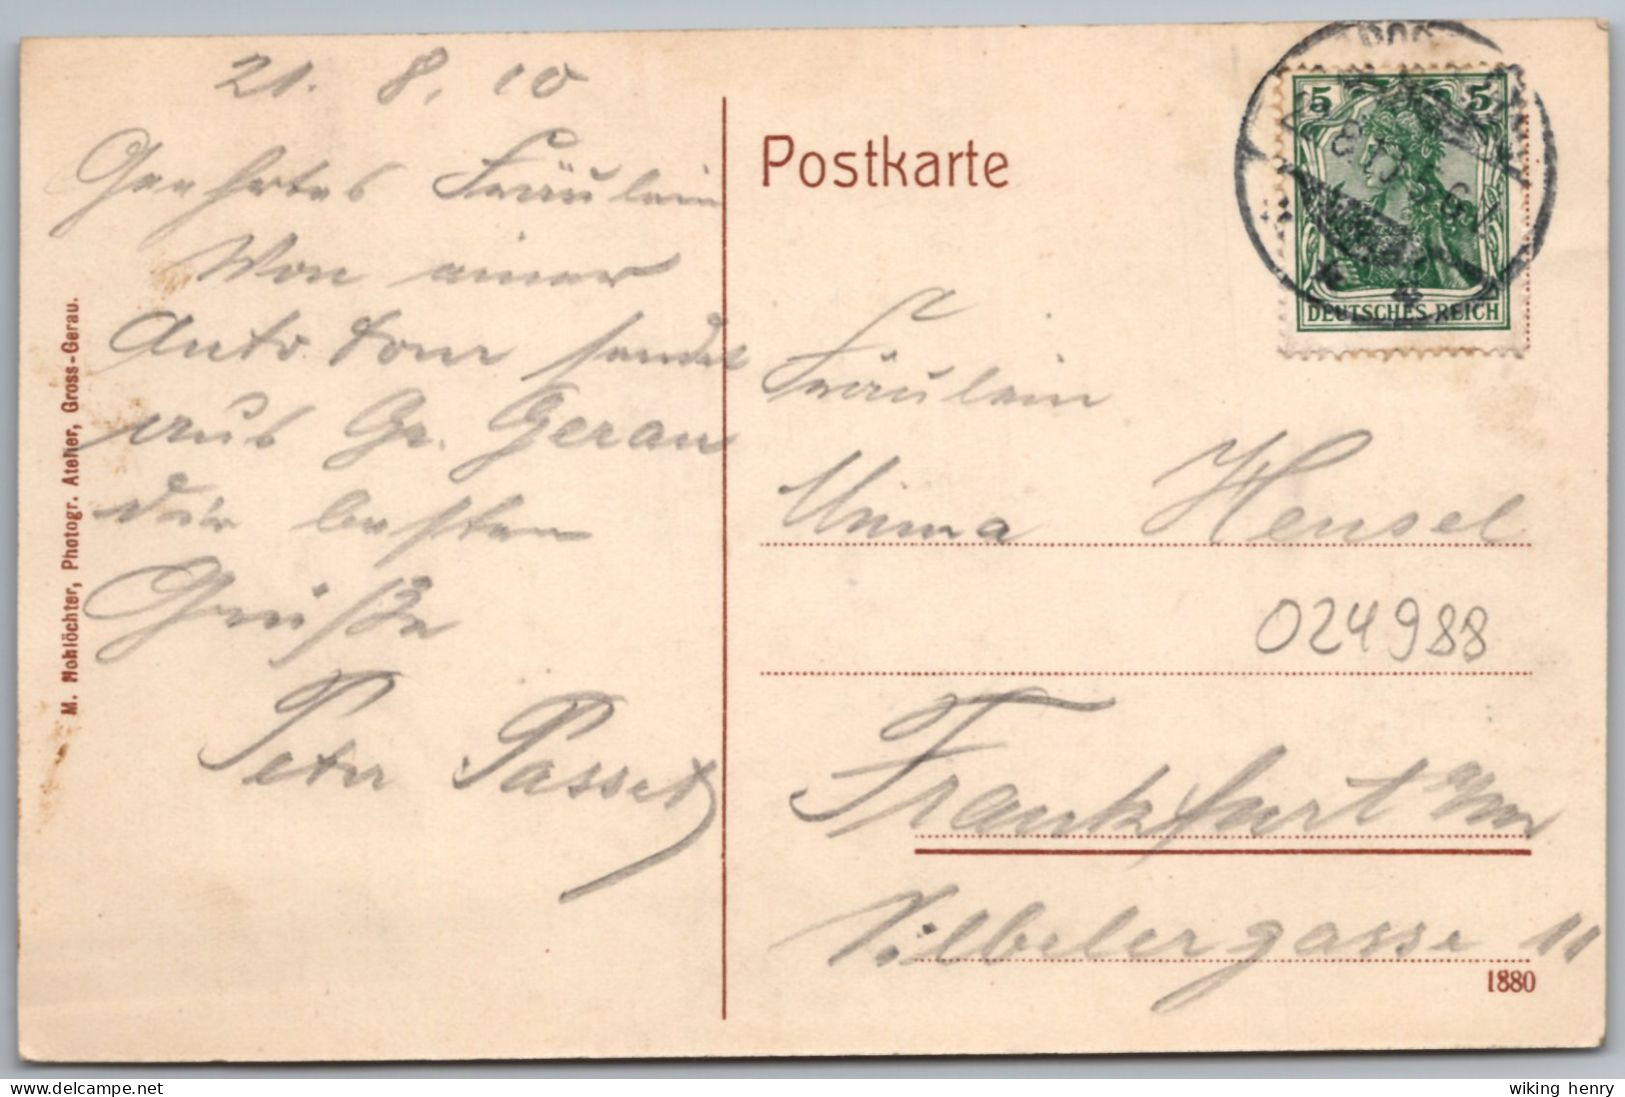 21. 8. 10
Geehrtes Fräulein
Von einer
Autotour sendet
aus Gr. Gerau
die besten
Grüße
Peter Passet
M. Hohlöchter, Photogr. Atelier, Gross-Gerau.
Postkarte
5 5
DEUTSCHES REICH
Fräulein
Minna Hensel
024988
Frankfurt a/M
Vilbelergasse 11
1880
delcampe.net
wiking henry